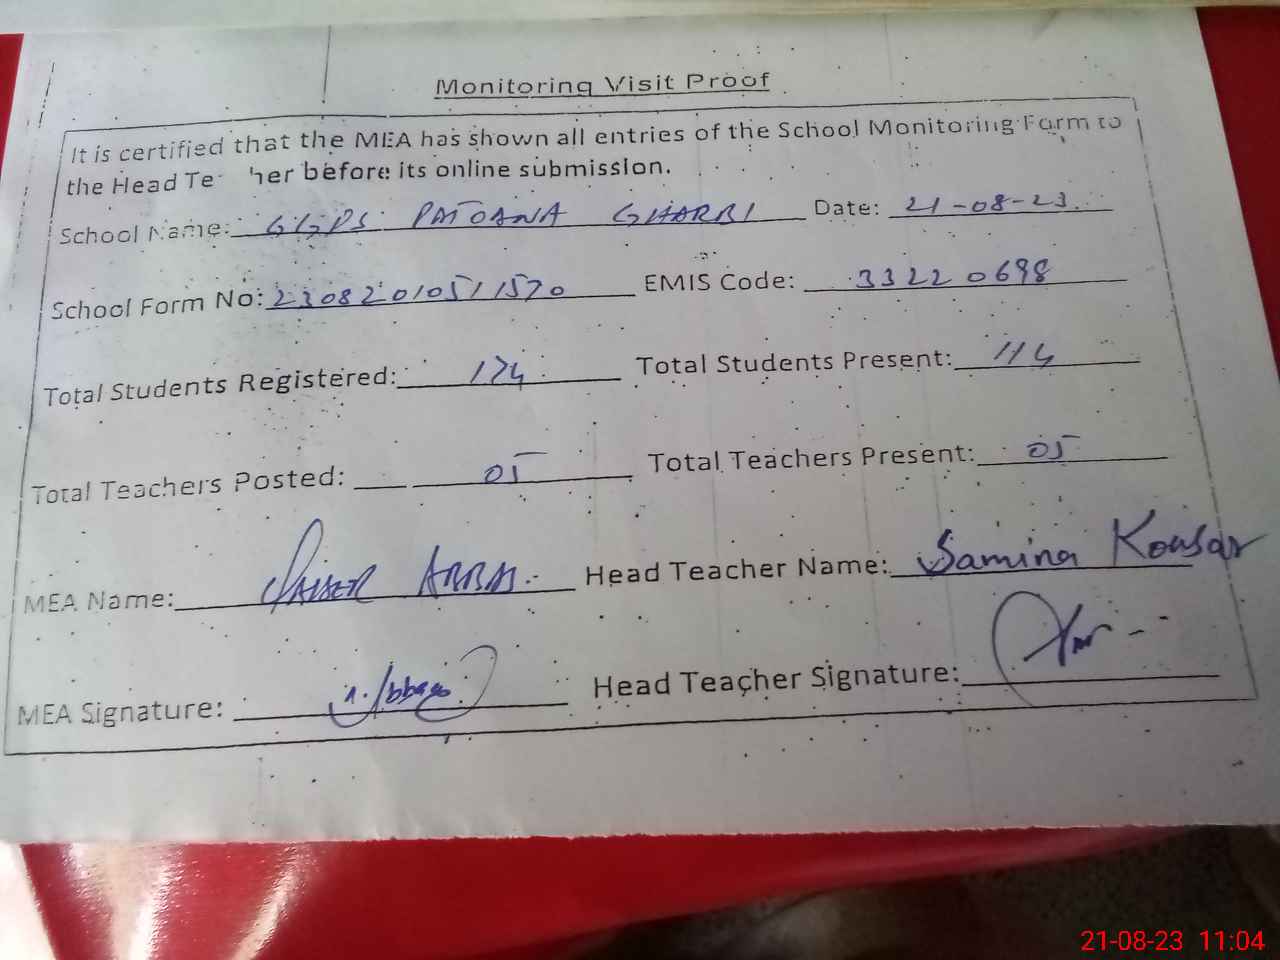 Monitoring Visit Proof
It is certified that the MEA has shown all entries of the School Monitoring Form to
the Head Te her before its online submission.
School Name: GGPS PATOANA GHARBI Date: 21-08-23
School Form No: 23082010511570 EMIS Code: 33220698
Total Students Registered: 174 Total Students Present: 114
Total Teachers Posted: 05 Total Teachers Present: 05
MEA Name: QAISER ABBAS Head Teacher Name: Samina Kousar
MEA Signature: Head Teacher Signature:
21-08-23 11:04